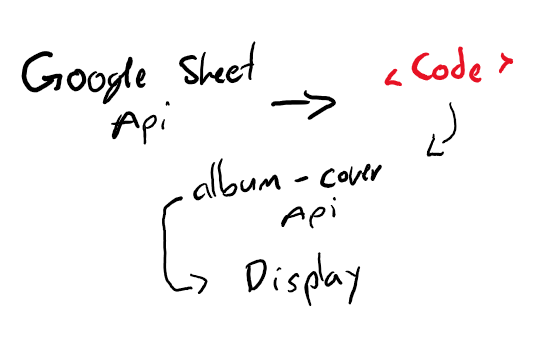 Google Sheet
Api
< Code >
album - cover
Api
Display